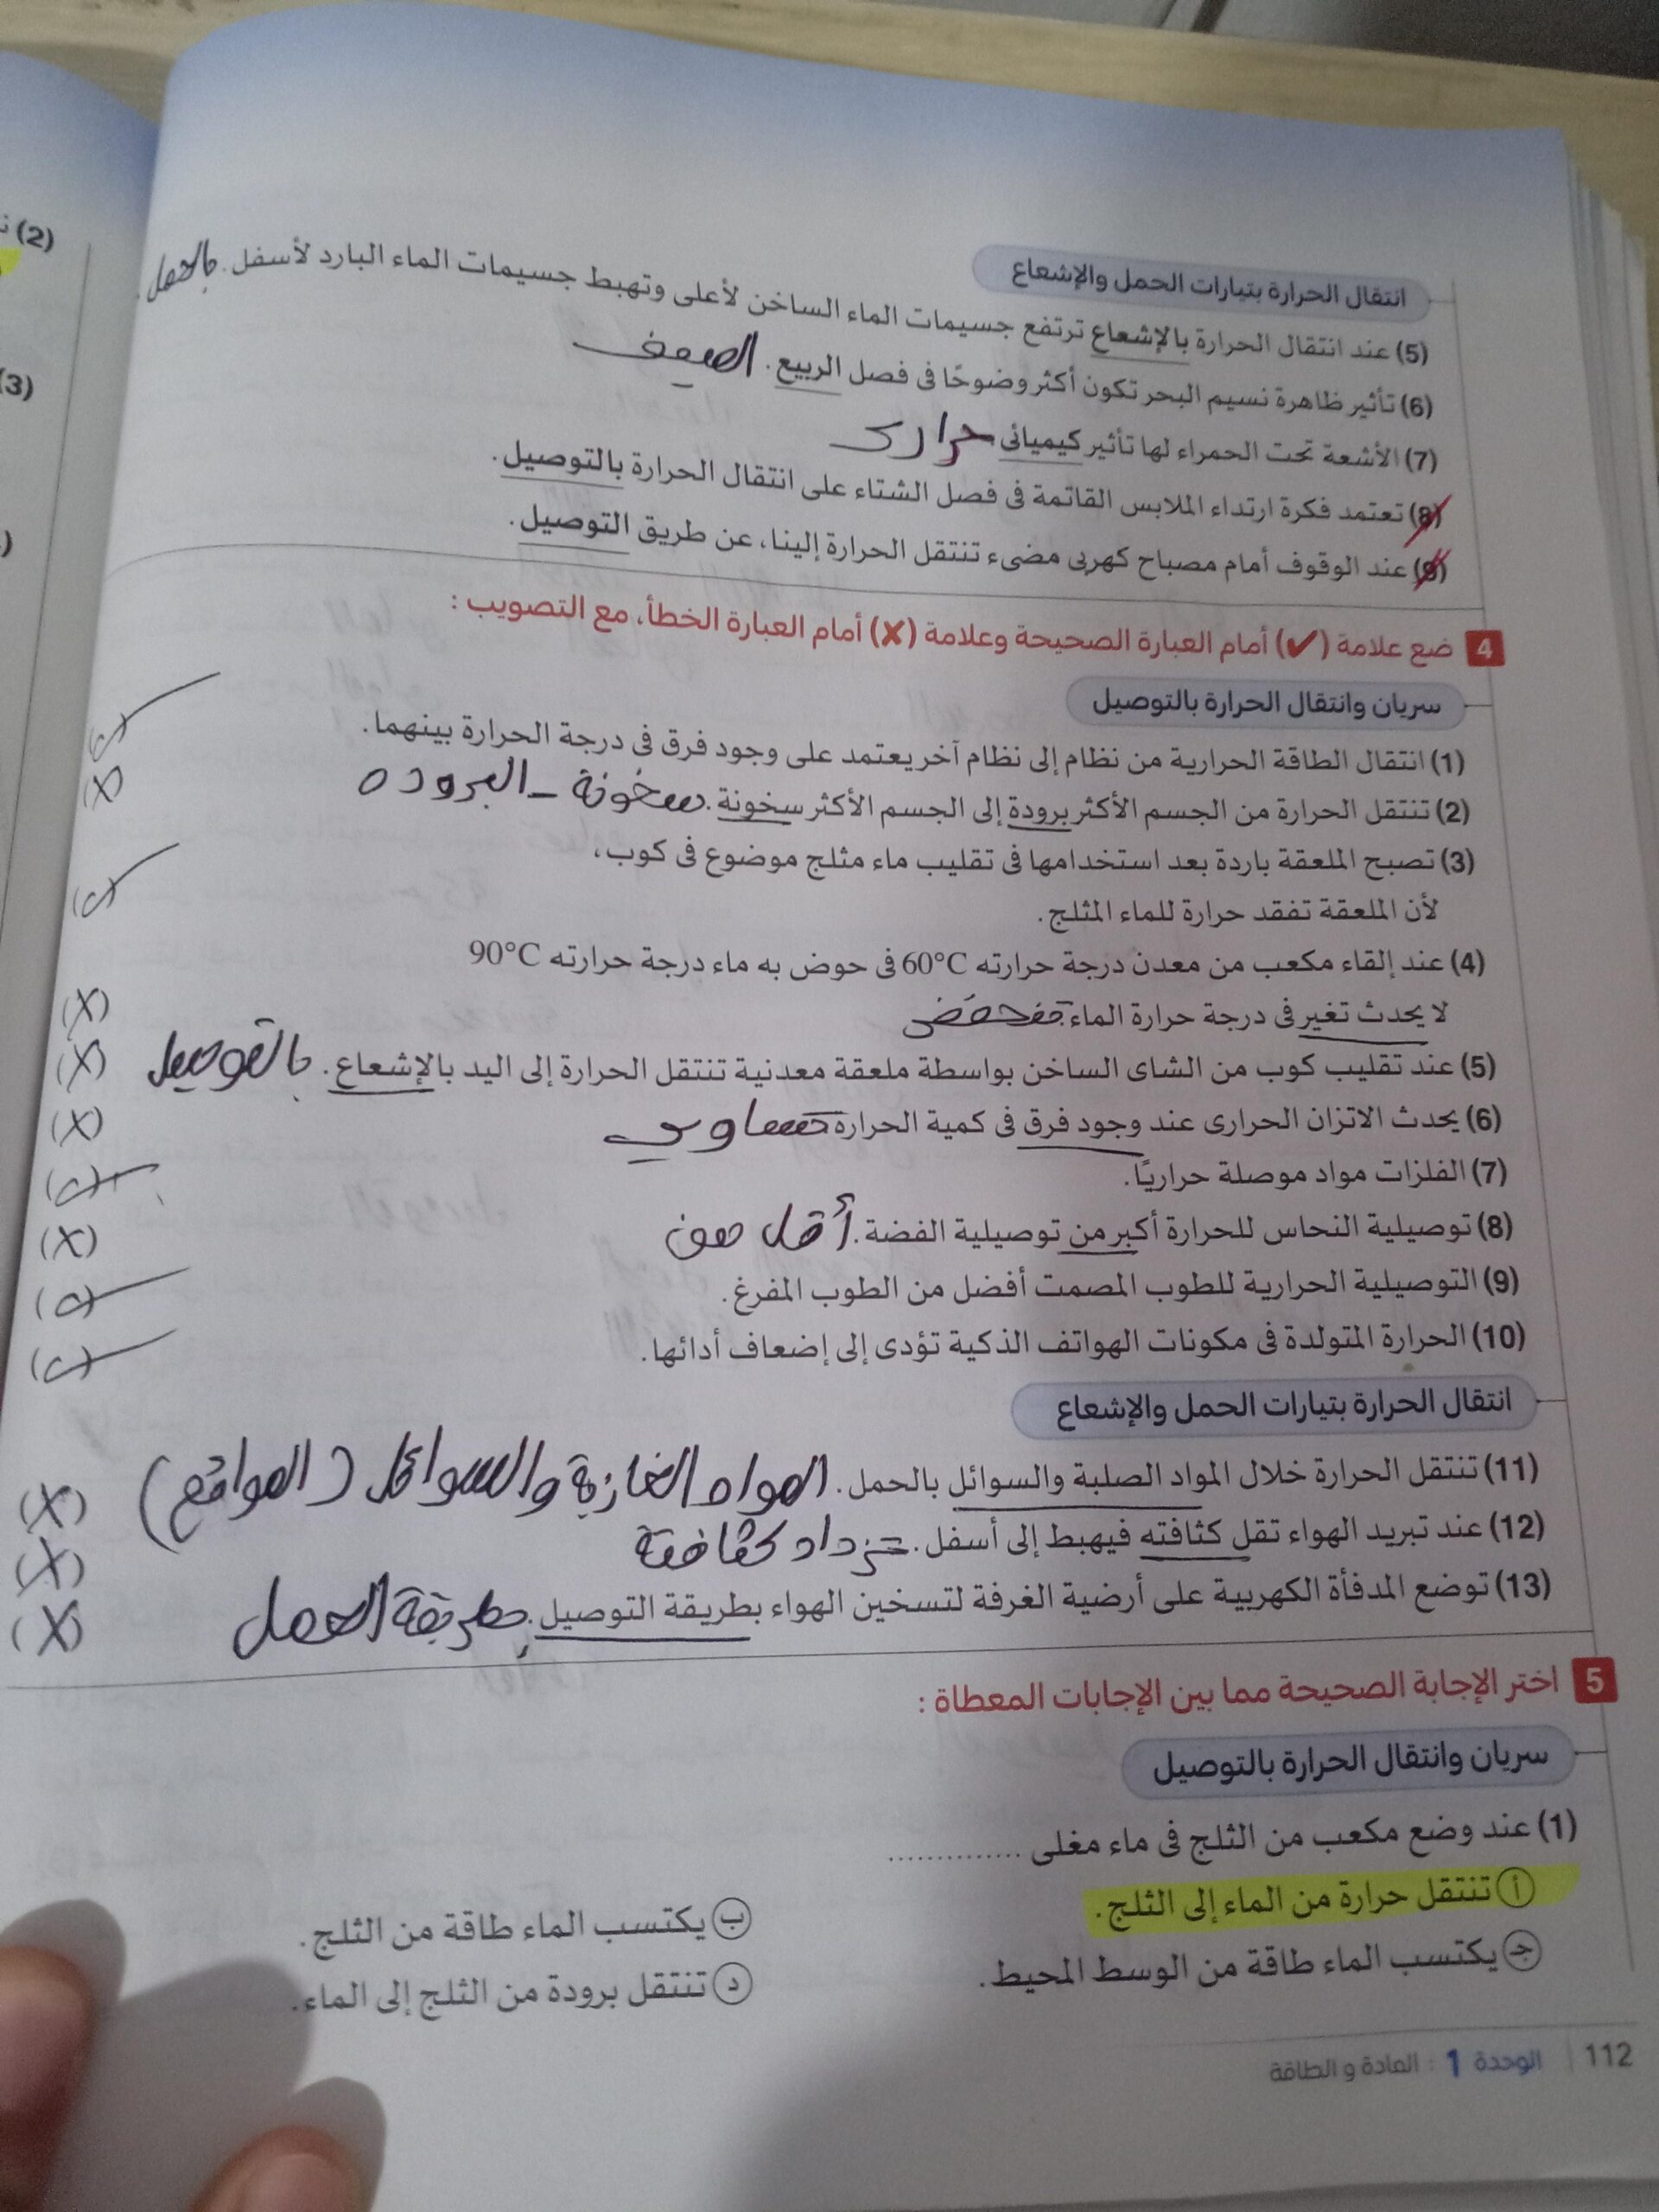 انتقال الحرارة بتيارات الحمل والإشعاع
(5) عند انتقال الحرارة بالإشعاع ترتفع جسيمات الماء الساخن لأعلى وتهبط جسيمات الماء البارد لأسفل. بالحمل.
(6) تأثير ظاهرة نسيم البحر تكون أكثر وضوحًا فى فصل الربيع. الصيف
(7) الأشعة تحت الحمراء لها تأثير كيميائى حرارى
(8) تعتمد فكرة ارتداء الملابس القاتمة فى فصل الشتاء على انتقال الحرارة بالتوصيل.
(9) عند الوقوف أمام مصباح كهربى مضىء تنتقل الحرارة إلينا، عن طريق التوصيل.
4 ضع علامة (✓) أمام العبارة الصحيحة وعلامة (✗) أمام العبارة الخطأ، مع التصويب :
سريان وانتقال الحرارة بالتوصيل
(1) انتقال الطاقة الحرارية من نظام إلى نظام آخر يعتمد على وجود فرق فى درجة الحرارة بينهما. (✓)
(2) تنتقل الحرارة من الجسم الأكثر برودة إلى الجسم الأكثر سخونة. سخونة - البروده (X)
(3) تصبح الملعقة باردة بعد استخدامها فى تقليب ماء مثلج موضوع فى كوب،
لأن الملعقة تفقد حرارة للماء المثلج. (✓)
(4) عند إلقاء مكعب من معدن درجة حرارته 60°C فى حوض به ماء درجة حرارته 90°C
لا يحدث تغير فى درجة حرارة الماء. (X)
(5) عند تقليب كوب من الشاى الساخن بواسطة ملعقة معدنية تنتقل الحرارة إلى اليد بالإشعاع. بالتوصيل (X)
(6) يحدث الاتزان الحرارى عند وجود فرق فى كمية الحرارة. تساوي (X)
(7) الفلزات مواد موصلة حراريًا. (✓)
(8) توصيلية النحاس للحرارة أكبر من توصيلية الفضة. أقل من (X)
(9) التوصيلية الحرارية للطوب المصمت أفضل من الطوب المفرغ. (✓)
(10) الحرارة المتولدة فى مكونات الهواتف الذكية تؤدى إلى إضعاف أدائها. (✓)
انتقال الحرارة بتيارات الحمل والإشعاع
(11) تنتقل الحرارة خلال المواد الصلبة والسوائل بالحمل. المواد الغازية والسوائل (الموائع) (X)
(12) عند تبريد الهواء تقل كثافته فيهبط إلى أسفل. تزداد كثافتة (X)
(13) توضع المدفأة الكهربية على أرضية الغرفة لتسخين الهواء بطريقة التوصيل. بطريقة الحمل (X)
5 اختر الإجابة الصحيحة مما بين الإجابات المعطاة :
سريان وانتقال الحرارة بالتوصيل
(1) عند وضع مكعب من الثلج فى ماء مغلى ..............
أ تنتقل حرارة من الماء إلى الثلج.
ب يكتسب الماء طاقة من الثلج.
ج يكتسب الماء طاقة من الوسط المحيط.
د تنتقل برودة من الثلج إلى الماء.
112 | الوحدة 1 : المادة و الطاقة
(2)
(3)